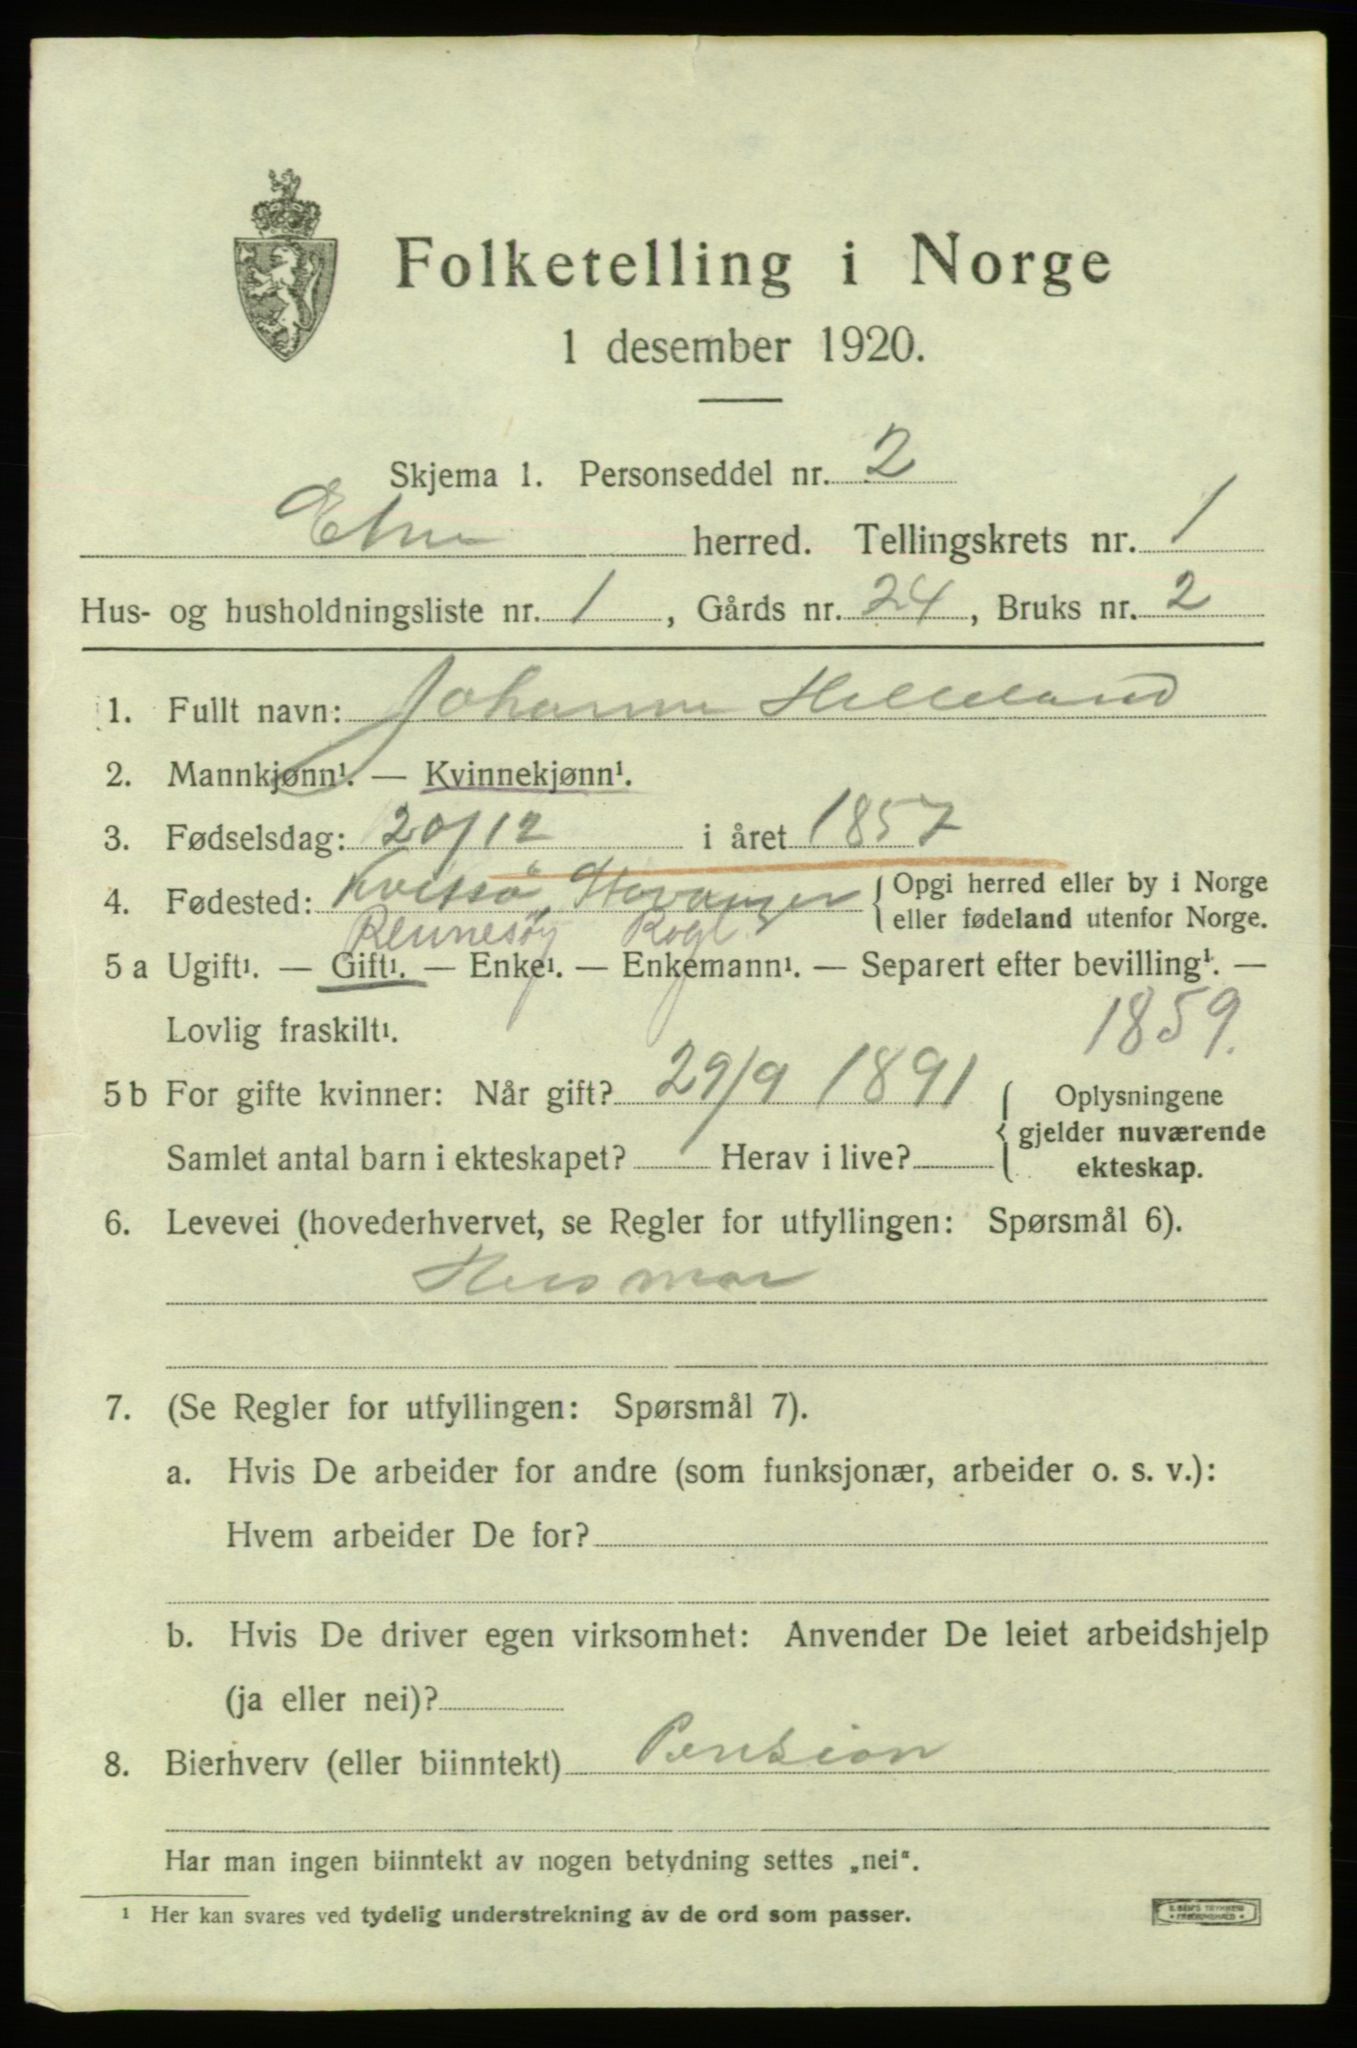 Folketelling i Norge
1 desember 1920.
Skjema 1. Personseddel nr. 2
Etne herred. Tellingskrets nr. 1
Hus- og husholdningsliste nr. 1, Gårds nr. 24, Bruks nr. 2
1. Fullt navn: Johanna Helleland
2. Mannkjønn¹. — Kvinnekjønn¹.
3. Fødselsdag: 20/12 i året 1857
4. Fødested: Kvitsö, Stavanger { Opgi herred eller by i Norge
eller fødeland utenfor Norge.
Rennesöy Rogl.
5 a Ugift¹. — Gift¹. — Enke¹. — Enkemann¹. — Separert efter bevilling¹. —
Lovlig fraskilt¹.
1859.
5 b For gifte kvinner: Når gift? 29/9 1891
Oplysningene
gjelder nuværende
ekteskap.
Samlet antal barn i ekteskapet? Herav i live?
6. Levevei (hovederhvervet, se Regler for utfyllingen: Spørsmål 6).
Husmor
7. (Se Regler for utfyllingen: Spørsmål 7).
a. Hvis De arbeider for andre (som funksjonær, arbeider o. s. v.):
Hvem arbeider De for?
b. Hvis De driver egen virksomhet: Anvender De leiet arbeidshjelp
(ja eller nei)?
8. Bierhverv (eller biinntekt) Pension
Har man ingen biinntekt av nogen betydning settes „nei“.
¹ Her kan svares ved tydelig understrekning av de ord som passer.